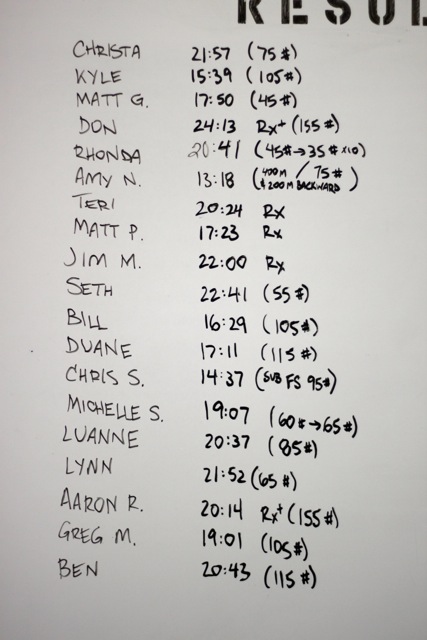 RESUL
CHRISTA 21:57 (75#)
KYLE 15:39 (105#)
MATT G. 17:50 (45#)
DON 24:13 Rx+ (155#)
RHONDA 20:41 (45#→35# x10)
AMY N. 13:18 (400M / 75# & 200M BACKWARD)
TERI 20:24 Rx
MATT P. 17:23 Rx
JIM M. 22:00 Rx
SETH 22:41 (55#)
BILL 16:29 (105#)
DUANE 17:11 (115#)
CHRIS S. 14:37 (SUB FS 95#)
MICHELLE S. 19:07 (60#→65#)
LUANNE 20:37 (85#)
LYNN 21:52 (65#)
AARON R. 20:14 Rx+ (155#)
GREG M. 19:01 (105#)
BEN 20:43 (115#)